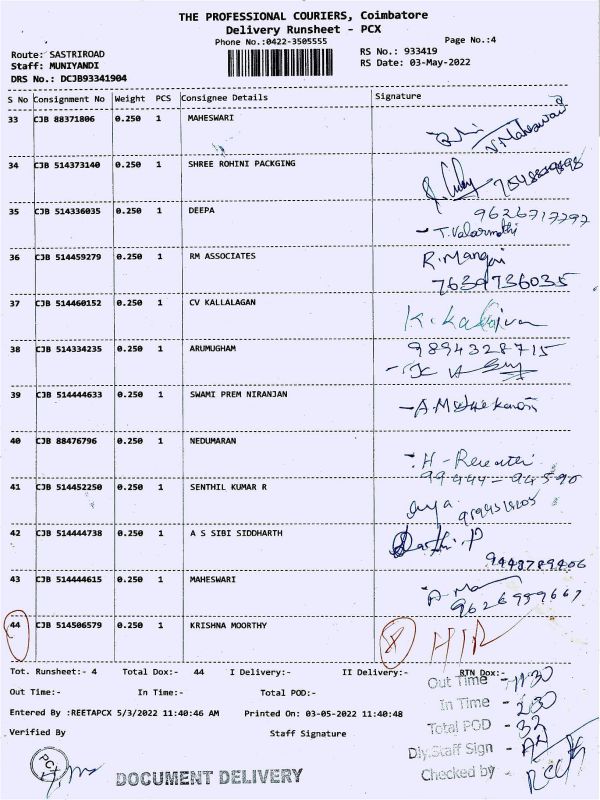 THE PROFESSIONAL COURIERS, Coimbatore
Delivery Runsheet - PCX
Phone No.:0422-3505555 Page No.:4
Route: SASTRIROAD RS No.: 933419
Staff: MUNIYANDI RS Date: 03-May-2022
DRS No.: DCJB93341904
S No Consignment No Weight PCS Consignee Details Signature
33 CJB 88371806 0.250 1 MAHESWARI
V. Maheswari
34 CJB 514373140 0.250 1 SHREE ROHINI PACKGING
35 CJB 514336035 0.250 1 DEEPA 9626717797
- T. Valarmathi
36 CJB 514459279 0.250 1 RM ASSOCIATES R. Mangai
7639736035
37 CJB 514460152 0.250 1 CV KALLALAGAN
38 CJB 514334235 0.250 1 ARUMUGHAM 9894328715
39 CJB 514444633 0.250 1 SWAMI PREM NIRANJAN
40 CJB 88476796 0.250 1 NEDUMARAN
H - Revathi
99444-94590
41 CJB 514452250 0.250 1 SENTHIL KUMAR R
42 CJB 514444738 0.250 1 A S SIBI SIDDHARTH
9443789406
43 CJB 514444615 0.250 1 MAHESWARI
9626959667
44 CJB 514506579 0.250 1 KRISHNA MOORTHY
Tot. Runsheet:- 4 Total Dox:- 44 I Delivery:- II Delivery:- RTN Dox:-
Out Time - 11:30
Out Time:- In Time:- Total POD:-
In Time - 2:30
Entered By :REETAPCX 5/3/2022 11:40:46 AM Printed On: 03-05-2022 11:40:48
Total POD - 33
Verified By Staff Signature
Dly.Staff Sign -
Checked by -
PCX
DOCUMENT DELIVERY